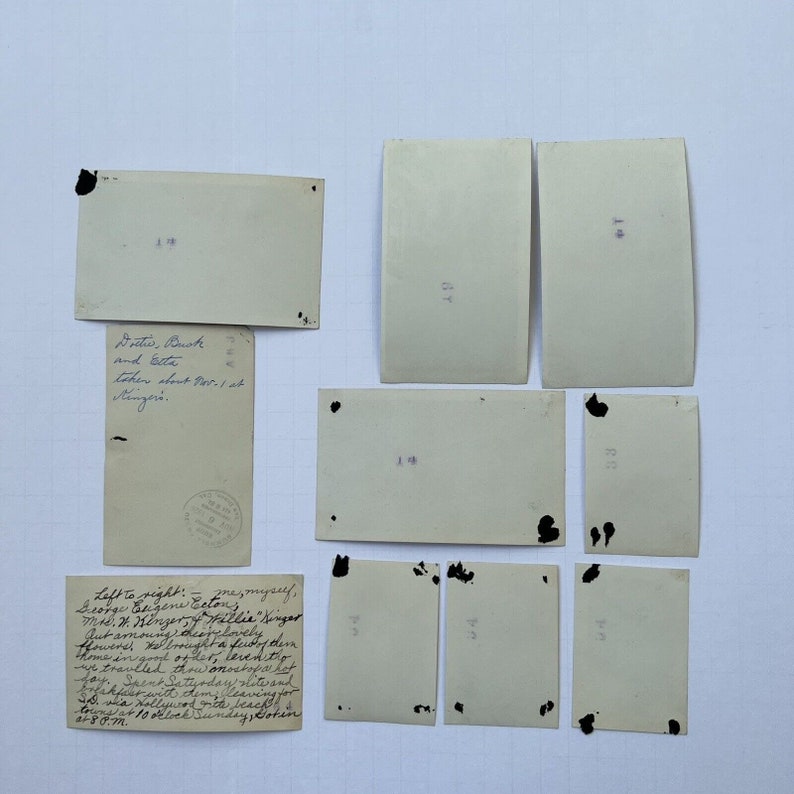 14
14
Dotie, Busk
and Etta
taken about Nov-1 at
Kinzer's.
14
33
34
34
34
Left to right: — me, myself,
George Eugene Ecton,
Mrs. W. Kinzer, & "Willie" Kinzer
Out amoung their lovely
flowers. We brought a few of them
home in good order, even tho
we travelled thru most of a hot
day. Spent Saturday nite and
breakfast with them; leaving for
S.D. via Hollywood & the beach
towns at 10 o'clock Sunday, Got in
at 8 P.M.